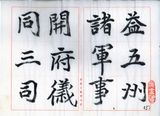 益五州
諸軍事
開府儀
同三司